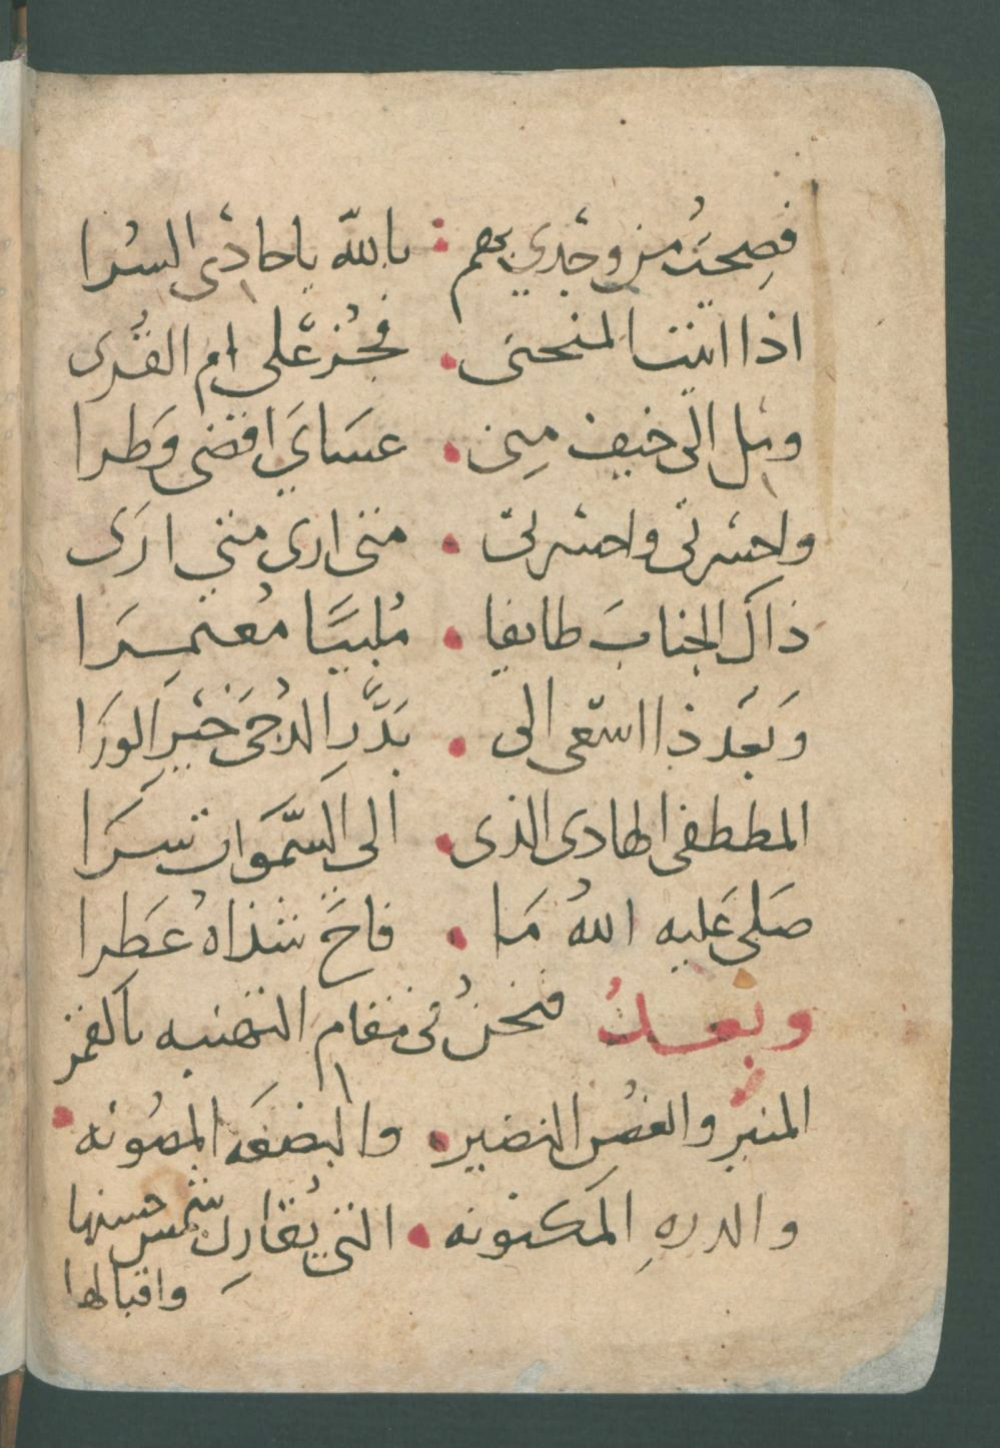 فصحتُ من وجدي بهم : بالله يا حادي السُرا
اذا اتيت المنحنى . فجُز على ام القُرى
ومل الى خيف مِنى . عسَايَ اقضى وَطرا
واحسرتى واحسرتى . متى ارى متى ارَى
ذاك الجنابَ طايفا . مُلبيًا مُعتمِرَا
وَبَعْد ذا اسعى الى . بَدْرِ الدُجَى خَيْرِ الوَرَا
المصطفى الهادى الذى . الى السَّمَوات سَرَا
صَلى عَليه اللهُ مَا . فاحَ شذاهُ عَطرا
وبعدُ فنحنُ فى مقام التهنيه بالقمر
المنير والغصُن النضير . والبضعَه المصُونه .
والدرهِ المَكنونه . التي يُقارِن شمس حسنها
واقبالها